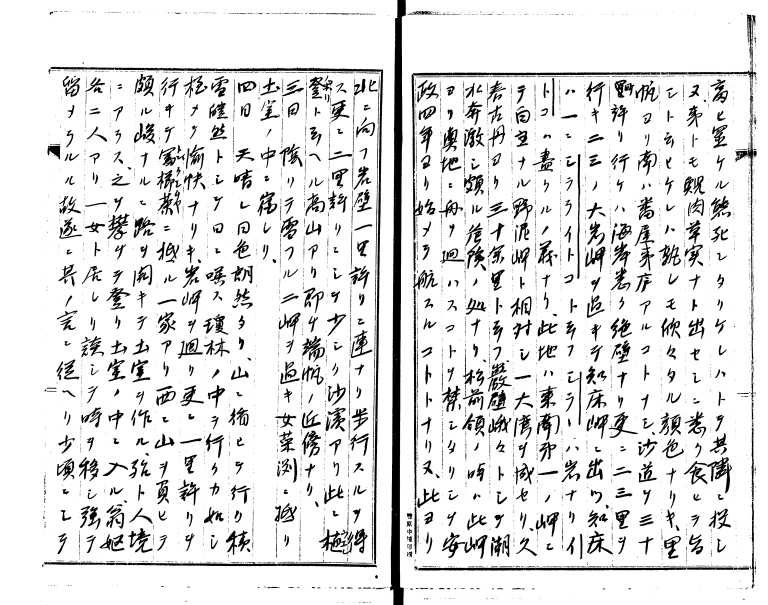 高ヒ置ケル熊死シタリケレハトヲ其隣ニ投シ
又弟トモ鯤肉草実ナト出セシニ悉ク食ヒヲ
ニト云ヒケレハ誰レモ欣々タル顔色ナリキ、里
帆ヨリ南ハ番屋事序アルコトナシ沙道ヲ三十
町許リ行ケハ海岸悉ク絶壁ナリ更ニ二三里ヲ
行キ二三ノ大岩岬ヲ過キテ知床岬ニ出ツ、知床
ハ一ニシラライトコト云フシラーハ岩ナリイ
トコハ盡クルノ義ナリ、此地ハ東南第一ノ岬ニ
テ白主ナル野泥岬ト相対シ一大湾ヲ成セリ、久
春古丹ヨリ三十余里ト云フ、巌壁峨々トシテ潮
水奔激シ頗ル危険ノ処ナリ、松前領ノ時ハ此岬
ヨリ奥地ニ舟ヲ廻ハスコトヲ禁シタリシヲ安
政四年ヨリ始メテ航スルコトトナリヌ、此ヨリ
北ニ向フ岩壁一里許リニ連ナリ歩行スルヲ得
ス更ニ二里許リニシテ少シク沙濱アリ此ニ樋
登ト云ヘル高山アリ即ケ端帆ノ近傍ナリ、
三日 陰リテ雪フル二岬ヲ過キ女菜渕ニ抵リ
土室ノ中ニ宿シリ、
四日 天晴レ日色朗然タリ、山ニ猶ヒテ行リ積
雪皚然トシテ日ニ映ス瓊林ノ中ヲ行クカ如シ
極メテ愉快ナリキ、岩岬ヲ廻リ更ニ一里許リヲ
行キテ富様菜ニ抵ル一家アリ西ニ山ヲ負ヒテ
頗ル峻ナルニ路ヲ開キテ土室ヲ作ル、殆ト人境
ニアラス、之ヲ攀チテ登リ土室ノ中ニ入ル、翁嫗
各二人アリ一女ト居レリ談シテ時ヲ移シ強テ
留メラルル故遂ニ其ノ言ニ従ヘリ少頃ニシテ